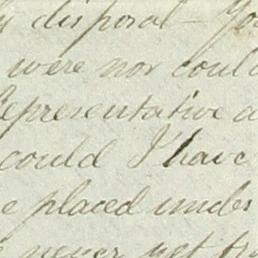 disposal – You
were nor could
Representative a
could I have
e placed under
never yet fr